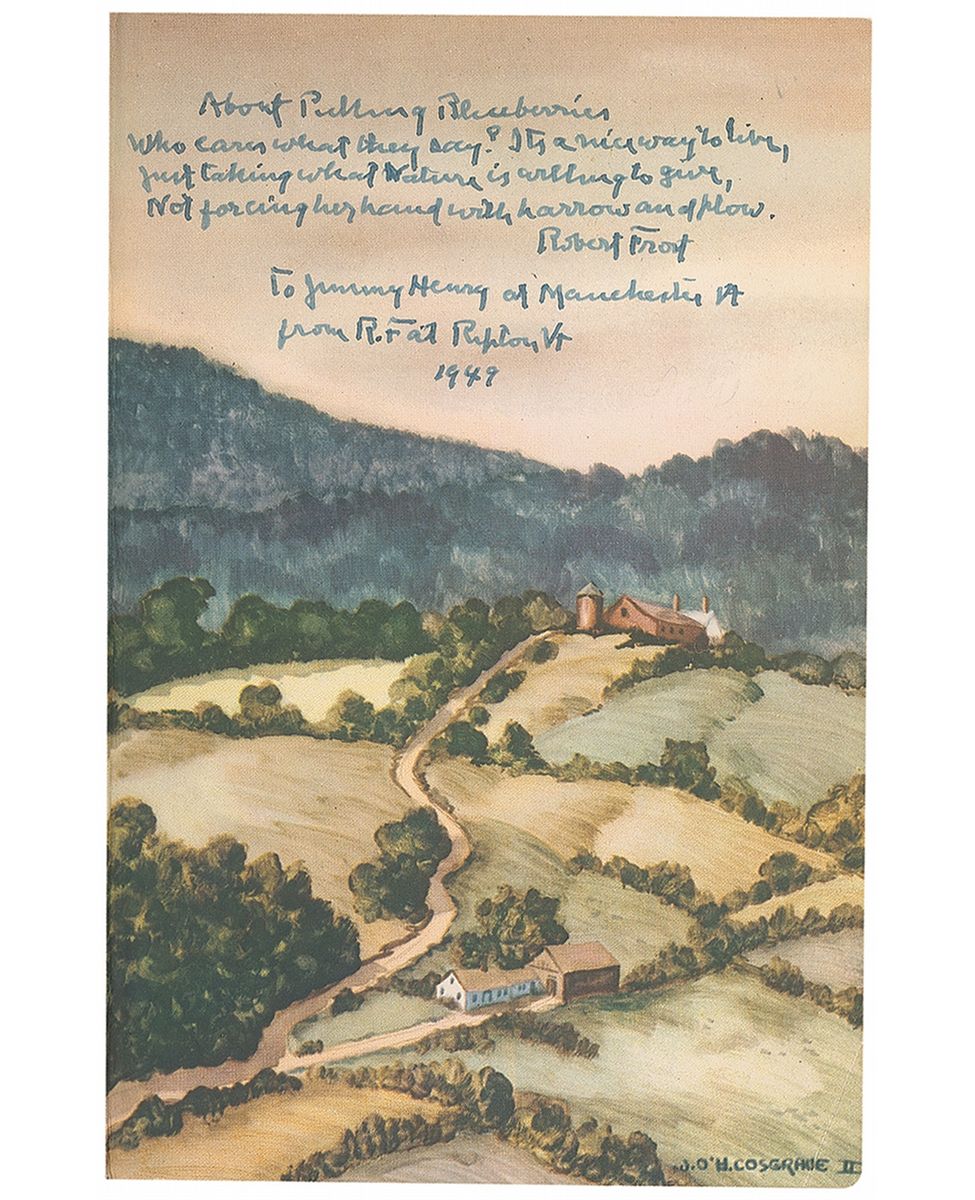 About Picking Blueberries
Who cares what they say? Its a nice way to live,
Just taking what Nature is willing to give,
Not forcing her hand with harrow and plow.
Robert Frost
To Jimmy Henry of Manchester Vt
from R.F. at Ripton Vt
1949
J.O'H.COSGRAVE II